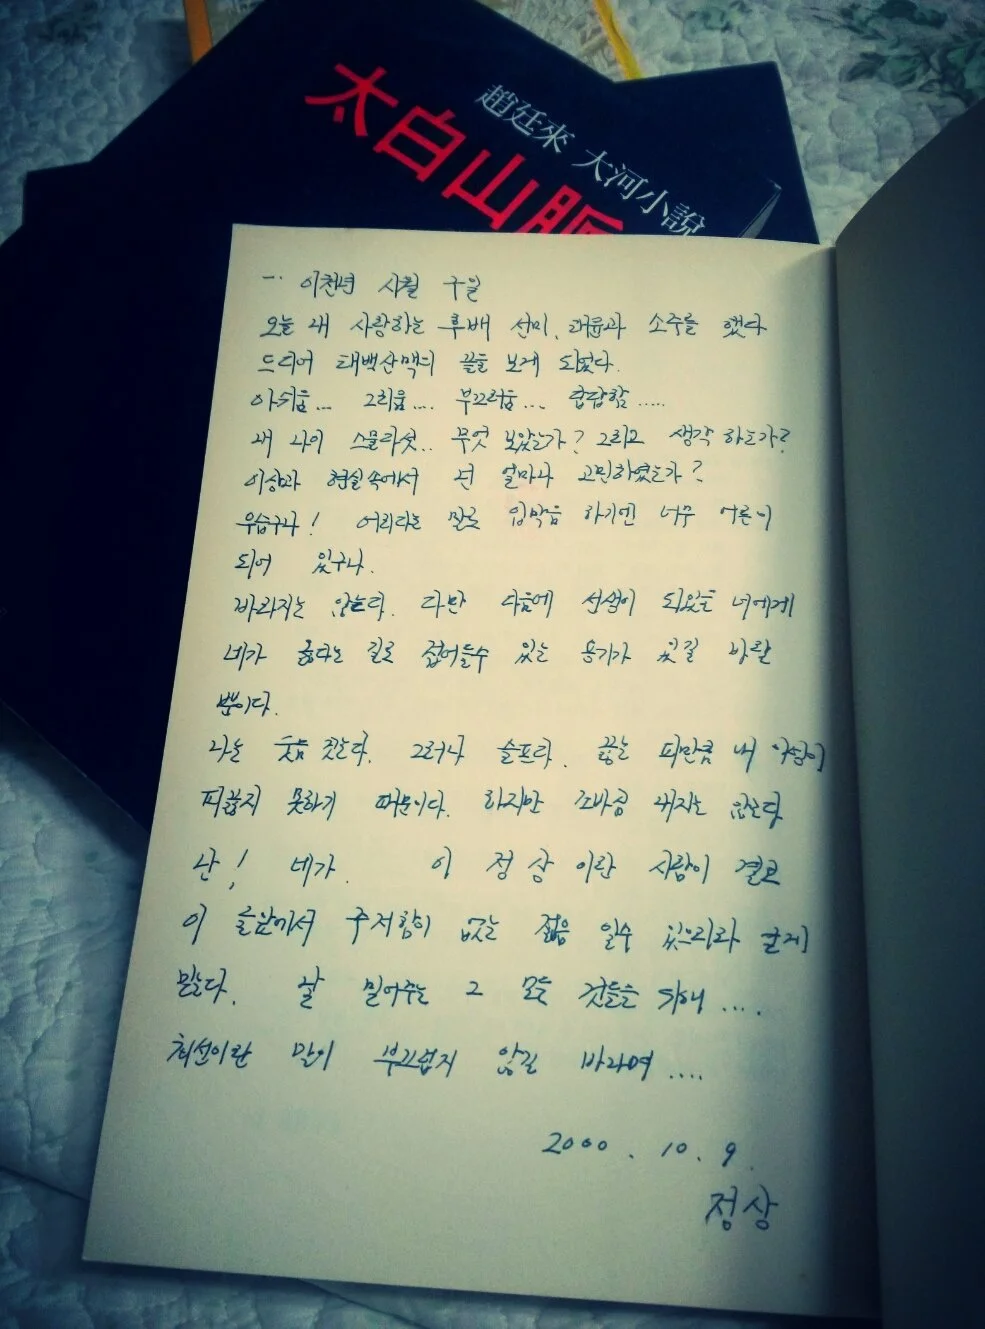 趙廷來 大河小說
太白山脈
一. 이천년 시월 구일
오늘 내 사랑하는 후배 선미, 과 소주를 했다
드디어 태백산맥의 끝을 보게 되었다.
아쉬움... 그리움.... 부끄러움.... 답답함.....
내 나이 스물다섯.. 무엇 보았는가? 그리고 생각 하는가?
이상과 현실속에서 넌 얼마나 고민하였는가?
우습구나! 어리다는 말로 입막음 하기엔 너무 어른이
되어 있구나.
바라지는 않는다. 다만 다음에 선생이 되었을 너에게
네가 옳다는 길로 접어들수 있는 용기가 있길 바랄
뿐이다.
나는 웃음 짓는다. 그러나 슬프다. 끓는 피만큼 내 이상이
피끓지 못하기 때문이다. 하지만 조바심 내지는 않는다
난! 네가. 이 정상 이란 사람이 결코
이 글앞에서 주저함이 없는 젊음 일수 있으리라 굳게
믿는다. 날 믿어주는 그 모든 것들을 위해....
최선이란 말이 부끄럽지 않길 바라며....
2000. 10. 9.
정상